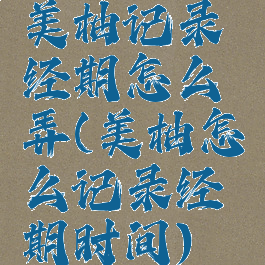 美柚记录
经期怎么
弄(美柚怎
么记录经
期时间)